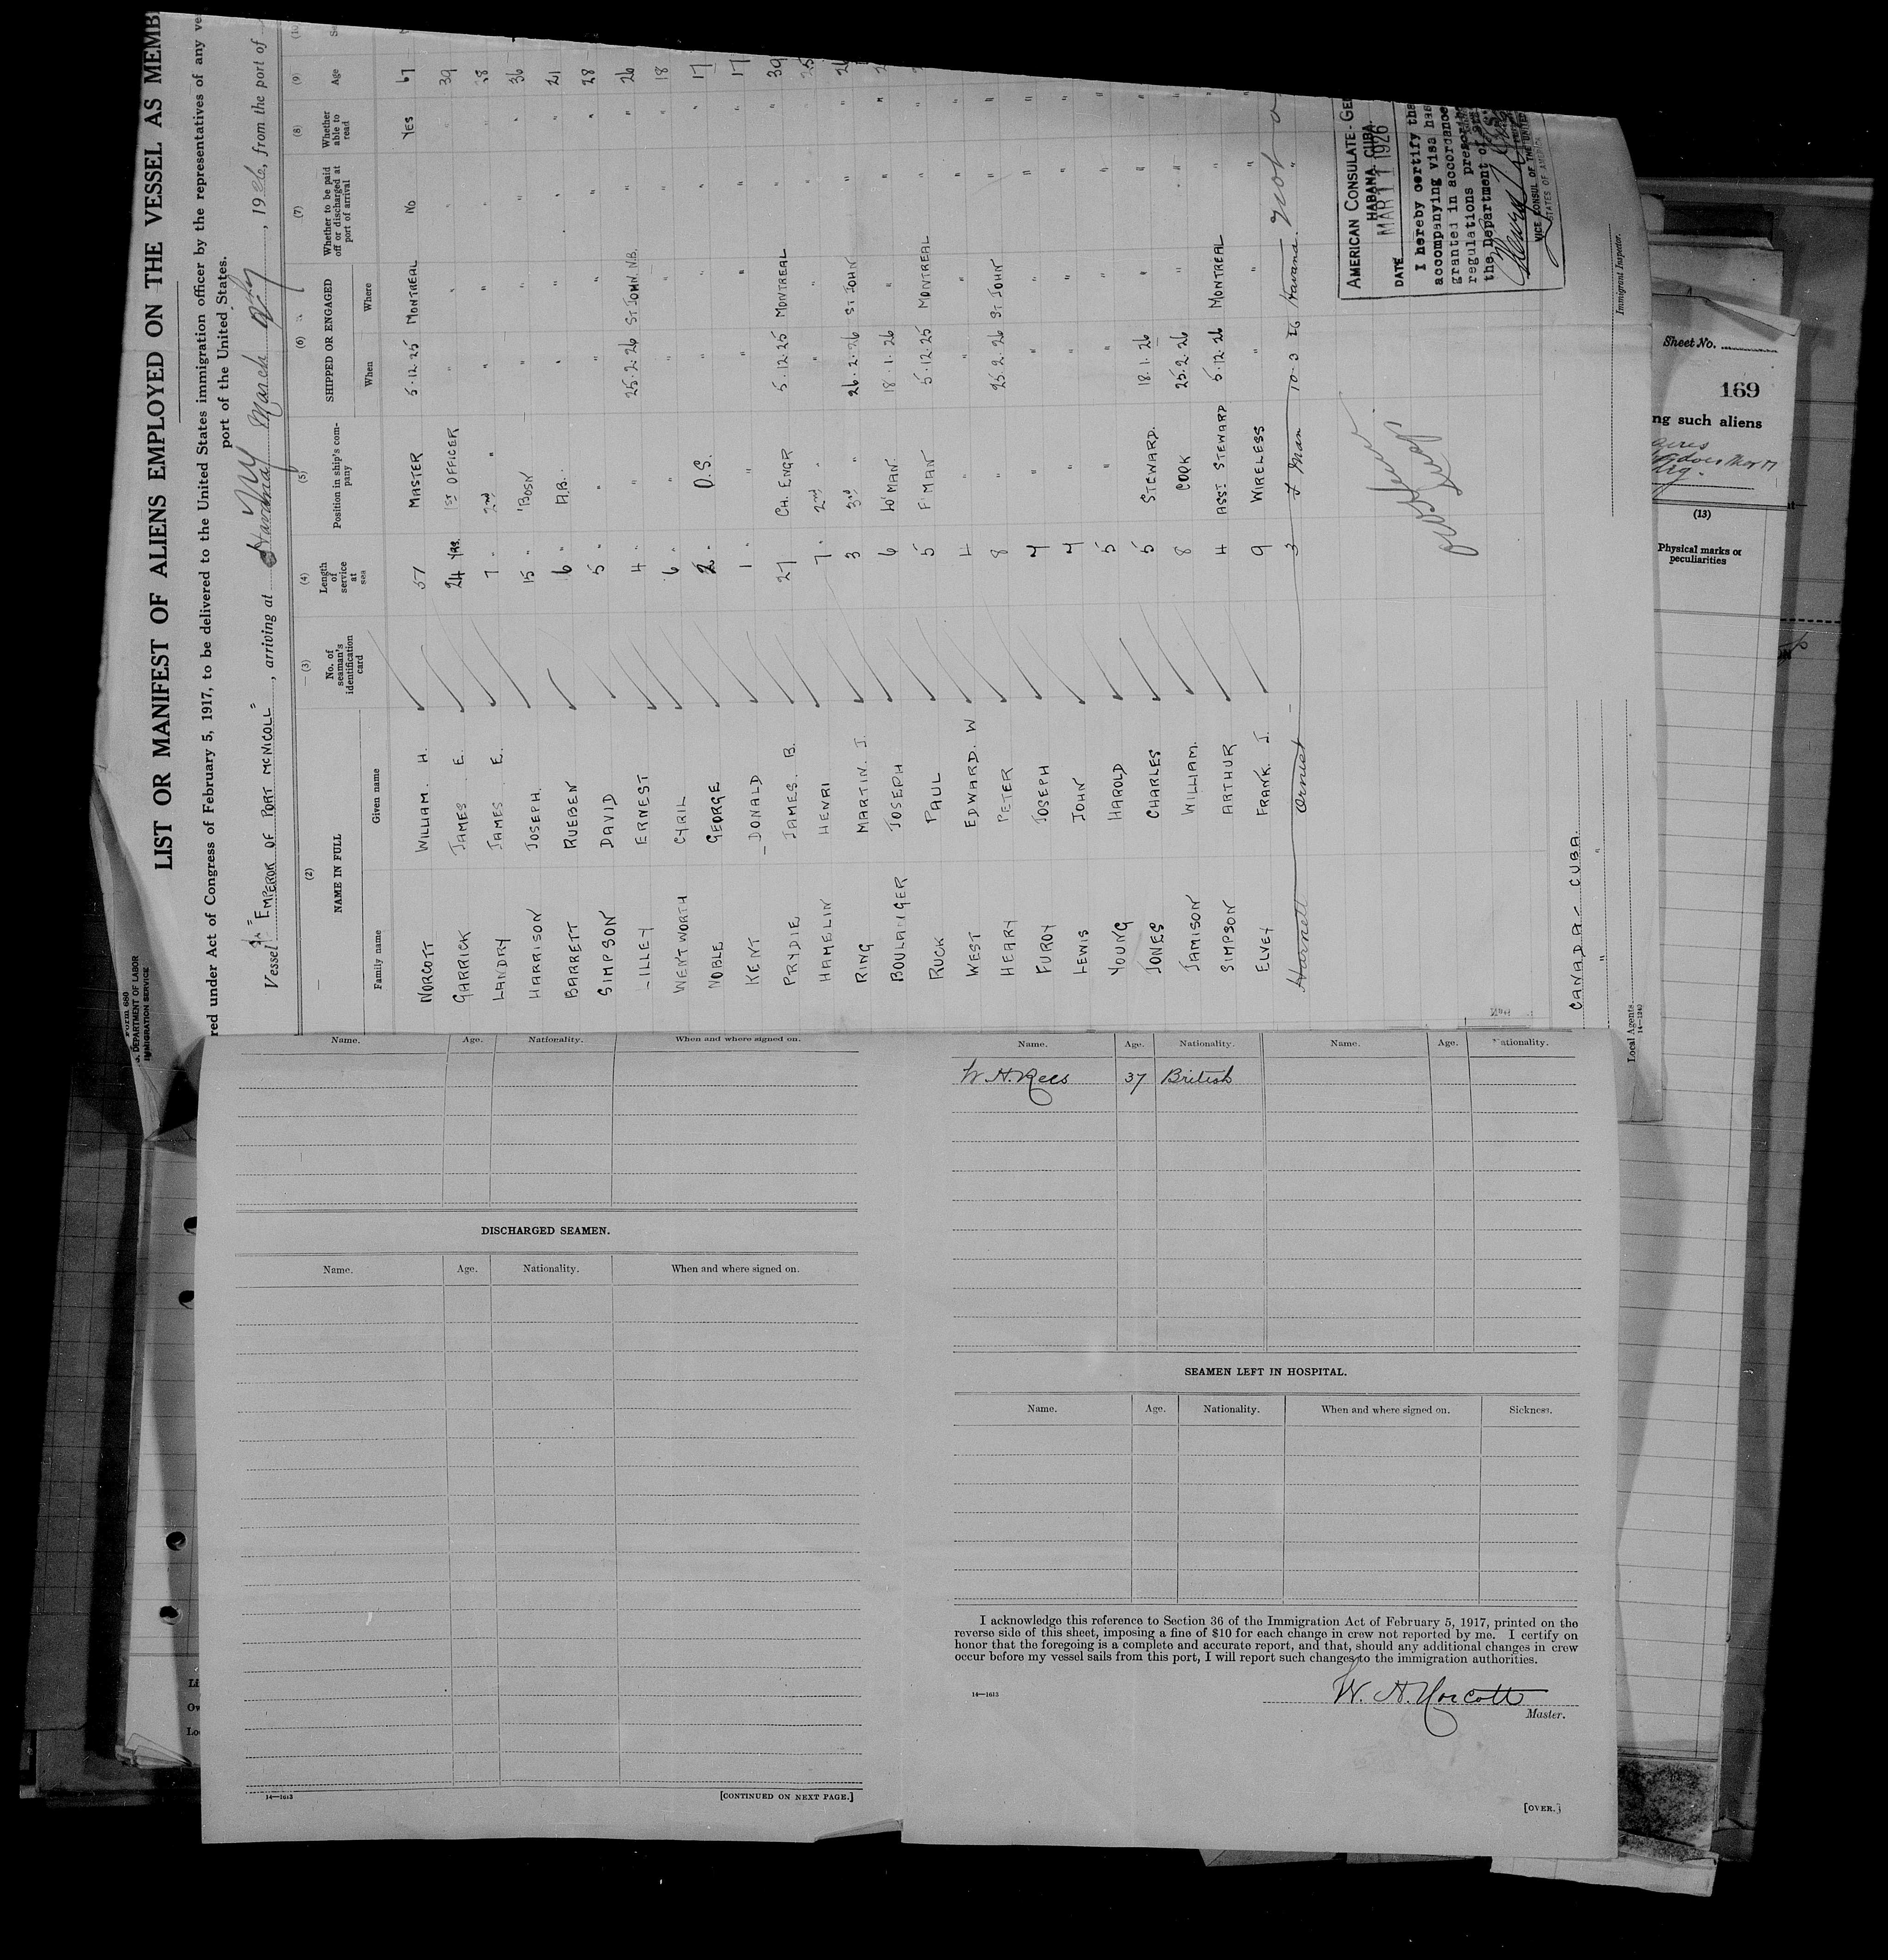 LIST OR MANIFEST OF ALIENS EMPLOYED ON THE VESSEL AS MEMB
red under Act of Congress of February 5, 1917, to be delivered to the United States immigration officer by the representatives of any ve
port of the United States.
Form 680
DEPARTMENT OF LABOR
IMMIGRATION SERVICE
Vessel "EMPEROR OF PORT MCNICOLL", arriving at Havana NY March, 1926, from the port of
(2) (3) (4) (5) (6) (7) (8) (9)
NAME IN FULL
Family name Given name
No. of seaman's identification card
Length of service at sea
Position in ship's company
SHIPPED OR ENGAGED
When Where
Whether to be paid off or discharged at port of arrival
Whether able to read
Age
NORCOTT WILLIAM. H. 57 MASTER 5.12.25 MONTREAL NO YES 67
GARRICK JAMES E. 24 YRS. 1ST OFFICER " " " " 39
LANDRY JAMES E. 7 " 2nd " " " " " 28
HARRISON JOSEPH. 15 " BOSN " " " " 36
BARRETT RUEBEN 6 " A.B. " " " " 21
SIMPSON DAVID 5 " " " " " " 28
LILLEY ERNEST 4 " " 25.2.26 ST JOHN N.B. " " 26
WENTWORTH CYRIL 6 " " " " " " 18
NOBLE GEORGE 2 " O.S. " " " " 17
KENT DONALD 1 " " " " " " 17
PRYDIE JAMES. B. 27 CH. ENGR 5.12.25 MONTREAL " " 39
HAMELIN HENRI 7 " 2nd " " " " 25
RING MARTIN. J. 3 3rd " 26.2.26 ST JOHN " "
BOULANGER JOSEPH 6 W'MAN. 18.1.26 " " "
RUCK PAUL 5 F'MAN 5.12.25 MONTREAL " "
WEST EDWARD. W 4 " " " " "
HEARY PETER 8 " 25.2.26 ST JOHN " "
FUROY JOSEPH 4 " " " " "
LEWIS JOHN 4 " " " " "
YOUNG HAROLD 5 " " " " "
JONES CHARLES 5 STEWARD. 18.1.26 " " "
JAMISON WILLIAM. 8 COOK 25.2.26 " " "
SIMPSON ARTHUR 4 ASST STEWARD 5.12.26 MONTREAL " "
ELVEY FRANK. J. 9 WIRELESS " " " "
Harnett Ernest 3 F Man 10.3.26 Havana. not
AMERICAN CONSULATE-GE
HABANA, CUBA.
DATE MAR 11 1926
I hereby certify tha
accompanying visa has
granted in accordance
regulations prescrib
the Department of
VICE CONSUL OF THE UNITED
STATES OF AMERICA
CANADA - CUBA.
" "
Local Agents
14—1240
Immigrant Inspector.
Sheet No.
169
ng such aliens
(13)
Physical marks or
peculiarities
Name. Age. Nationality. When and where signed on.
DISCHARGED SEAMEN.
Name. Age. Nationality. When and where signed on.
14—1613 [CONTINUED ON NEXT PAGE.]
Name. Age. Nationality. Name. Age. Nationality.
W. H. Rees 37 British
SEAMEN LEFT IN HOSPITAL.
Name. Age. Nationality. When and where signed on. Sickness.
I acknowledge this reference to Section 36 of the Immigration Act of February 5, 1917, printed on the
reverse side of this sheet, imposing a fine of $10 for each change in crew not reported by me. I certify on
honor that the foregoing is a complete and accurate report, and that, should any additional changes in crew
occur before my vessel sails from this port, I will report such changes to the immigration authorities.
14—1613
W. H. Norcott
Master.
[OVER.]